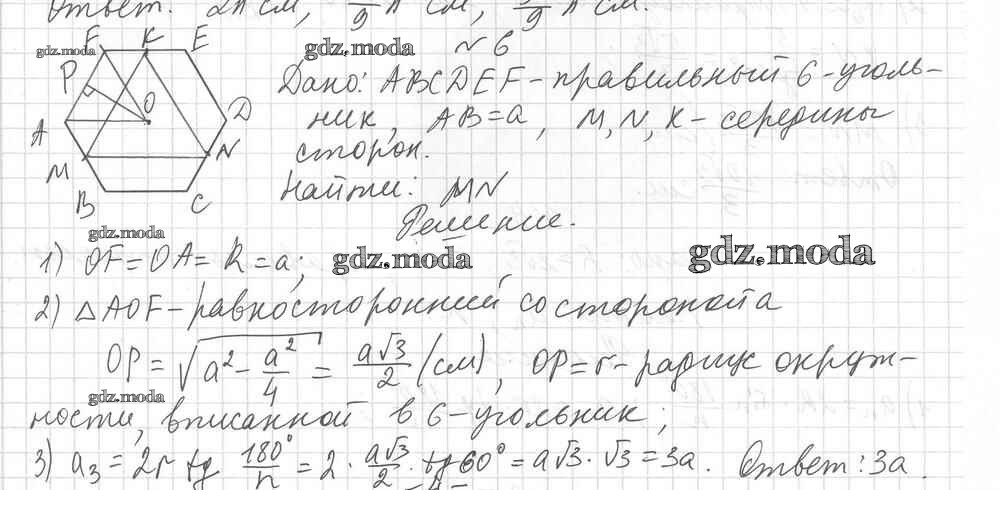 Ответ: 2π см, /9 π см, /9 π см.
gdz.moda
F K E
gdz.moda
№ 6
P
O
A
D
M
N
B
C
Дано: ABCDEF – правильный 6-уголь-
ник, AB = a, M, N, K – середины
сторон.
Найти: MN
Решение.
gdz.moda
1) OF = OA = R = a;
gdz.moda
gdz.moda
2) △AOF – равносторонний со стороной a
OP = √(a² – a²/4) = a√3/2 (см), OP = r – радиус окруж-
gdz.moda
ности, вписанной в 6-угольник;
3) a₃ = 2r tg 180°/n = 2 · a√3/2 · tg 60° = a√3 · √3 = 3a. Ответ: 3a.